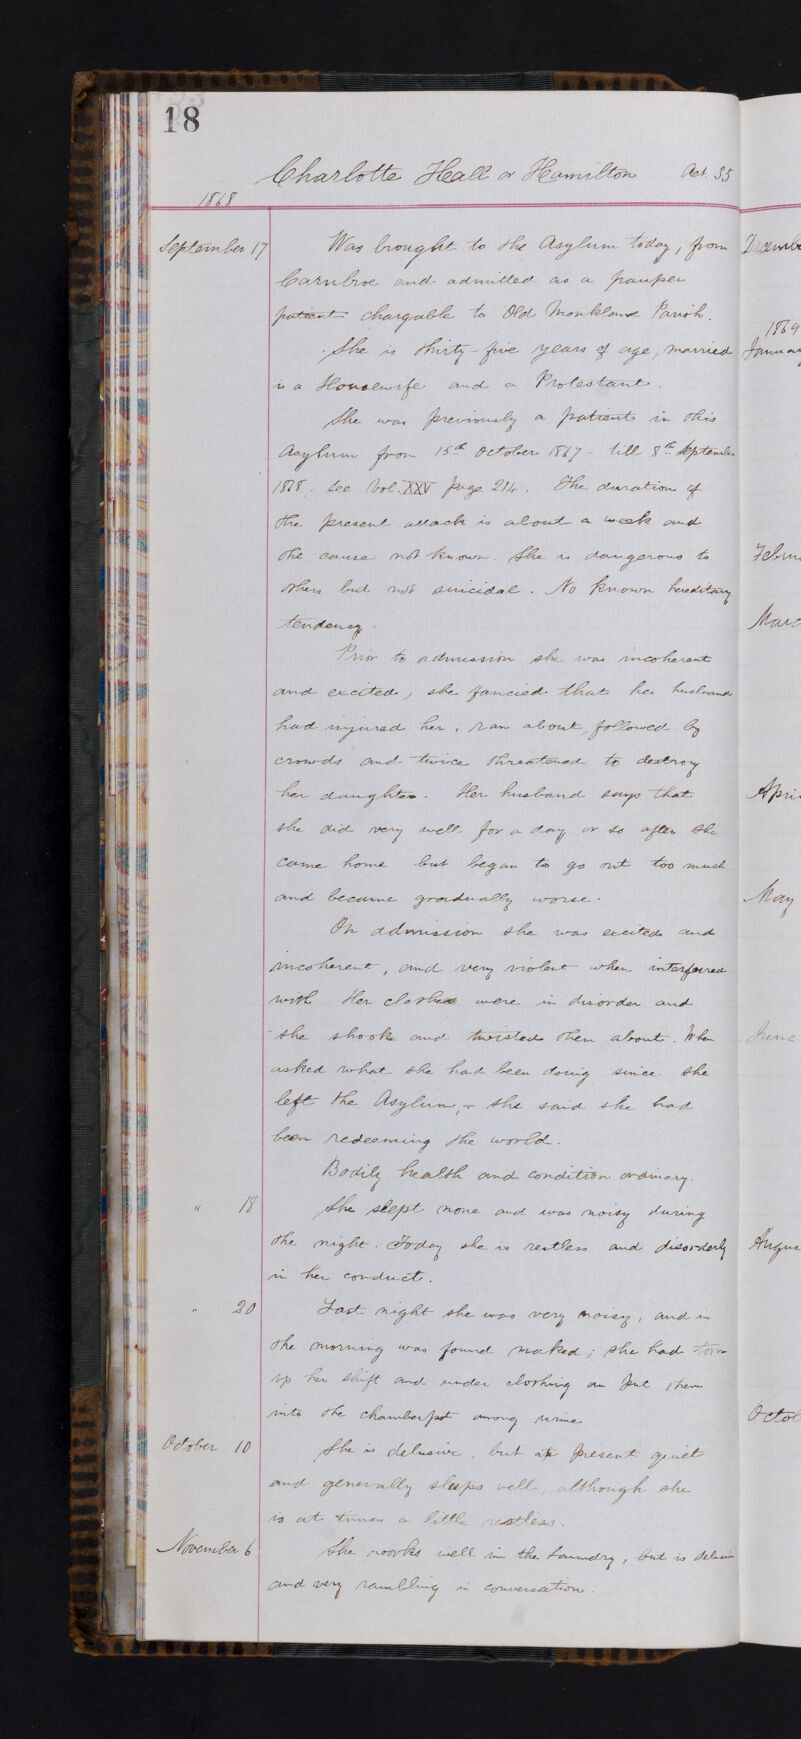 18
Charlotte Hall or Hamilton Aet. 35
1868
September 17 Was brought to the Asylum today, from
Carnbroe and admitted as a pauper
patient chargable to Old Monkland Parish.
She is thirty-five years of age, married
is a Housewife and a Protestant.
She was previously a patient in this
Asylum from 15th October 1867 - till 8th September
1868. See Vol. XXV page 214. The duration of
the present attack is about a week and
the cause not known. She is dangerous to
others but not suicidal. No known hereditary
tendency.
Prior to admission she was incoherent
and excited, she fancied that her husband
had injured her; ran about, followed by
crowds and twice threatened to destroy
her daughter. Her husband says that
she did very well for a day or so after she
came home but began to go out too much
and became gradually worse.
On admission she was excited and
incoherent, and very violent when interfered
with. Her clothes were in disorder and
she shook and twisted them about. When
asked what she had been doing since she
left the Asylum, - she said she had
been redeeming the world.
Bodily health and condition ordinary.
" 18 She slept none and was noisy during
the night. Today she is restless and disorderly
in her conduct.
" 20 Last night she was very noisy, and in
the morning was found naked; she had torn
up her shift and under clothing an put them
into the chamberpot among urine
October 10 She is delusive, but at present quiet
and generally sleeps well, although she
is at times a little restless.
November 6 She works well in the Laundry, but is delusive
and very rambling in conversation.
Decembe
1869
January
Febru
Marc
Apri
May
June
Augus
Octob